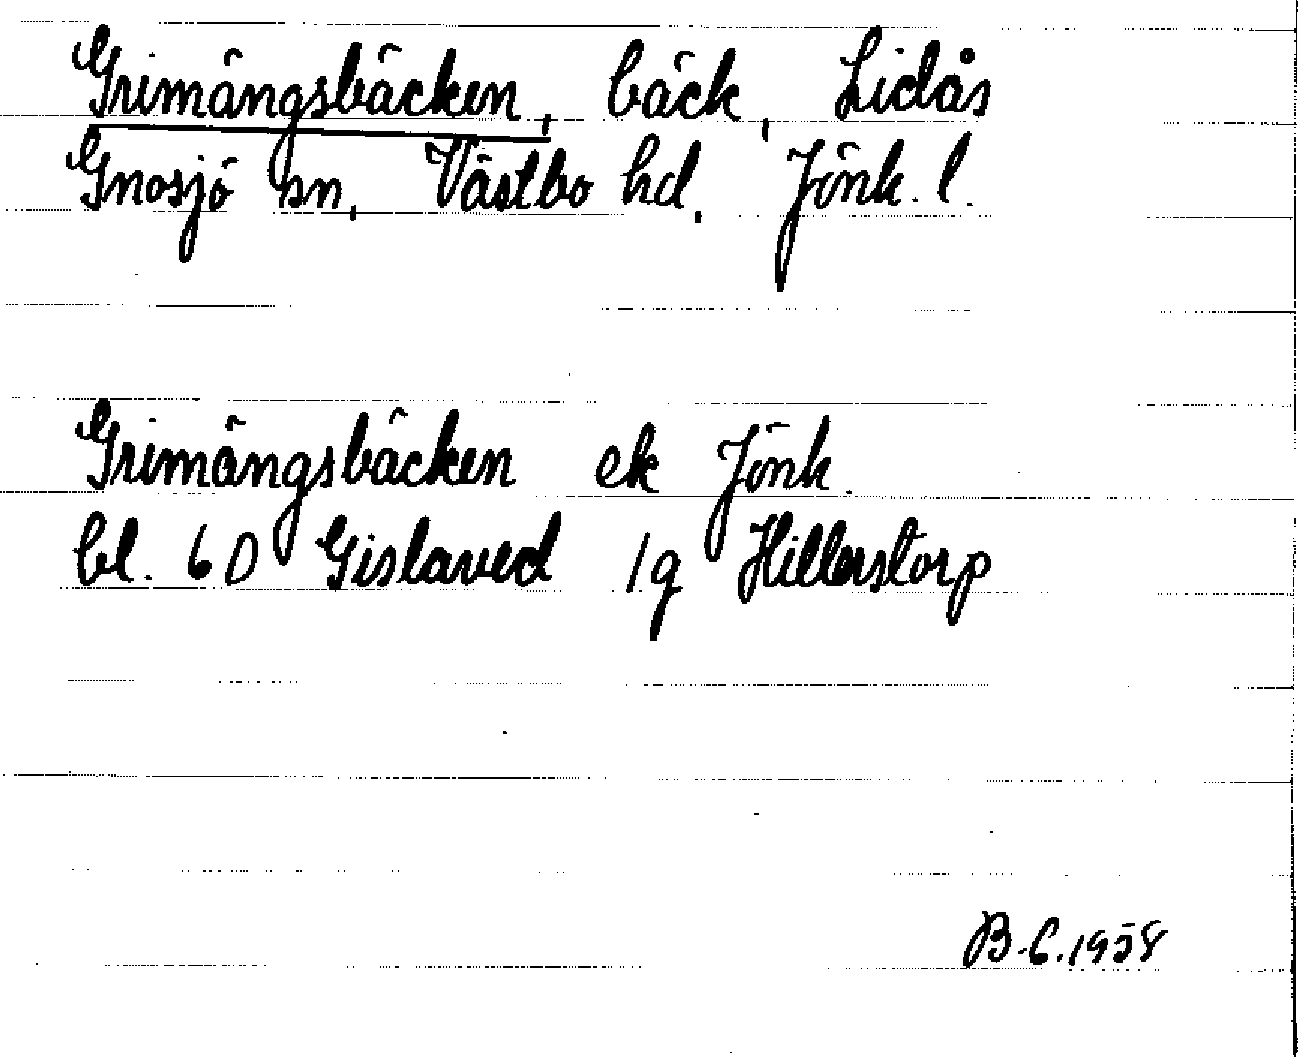 Grimängsbäcken, bäck, Lidås
Gnosjö sn, Västbo hd, Jönk. l.
Grimängsbäcken ek Jönk.
bl. 6 D Gislaved 1g Hillerstorp
B.C. 1958